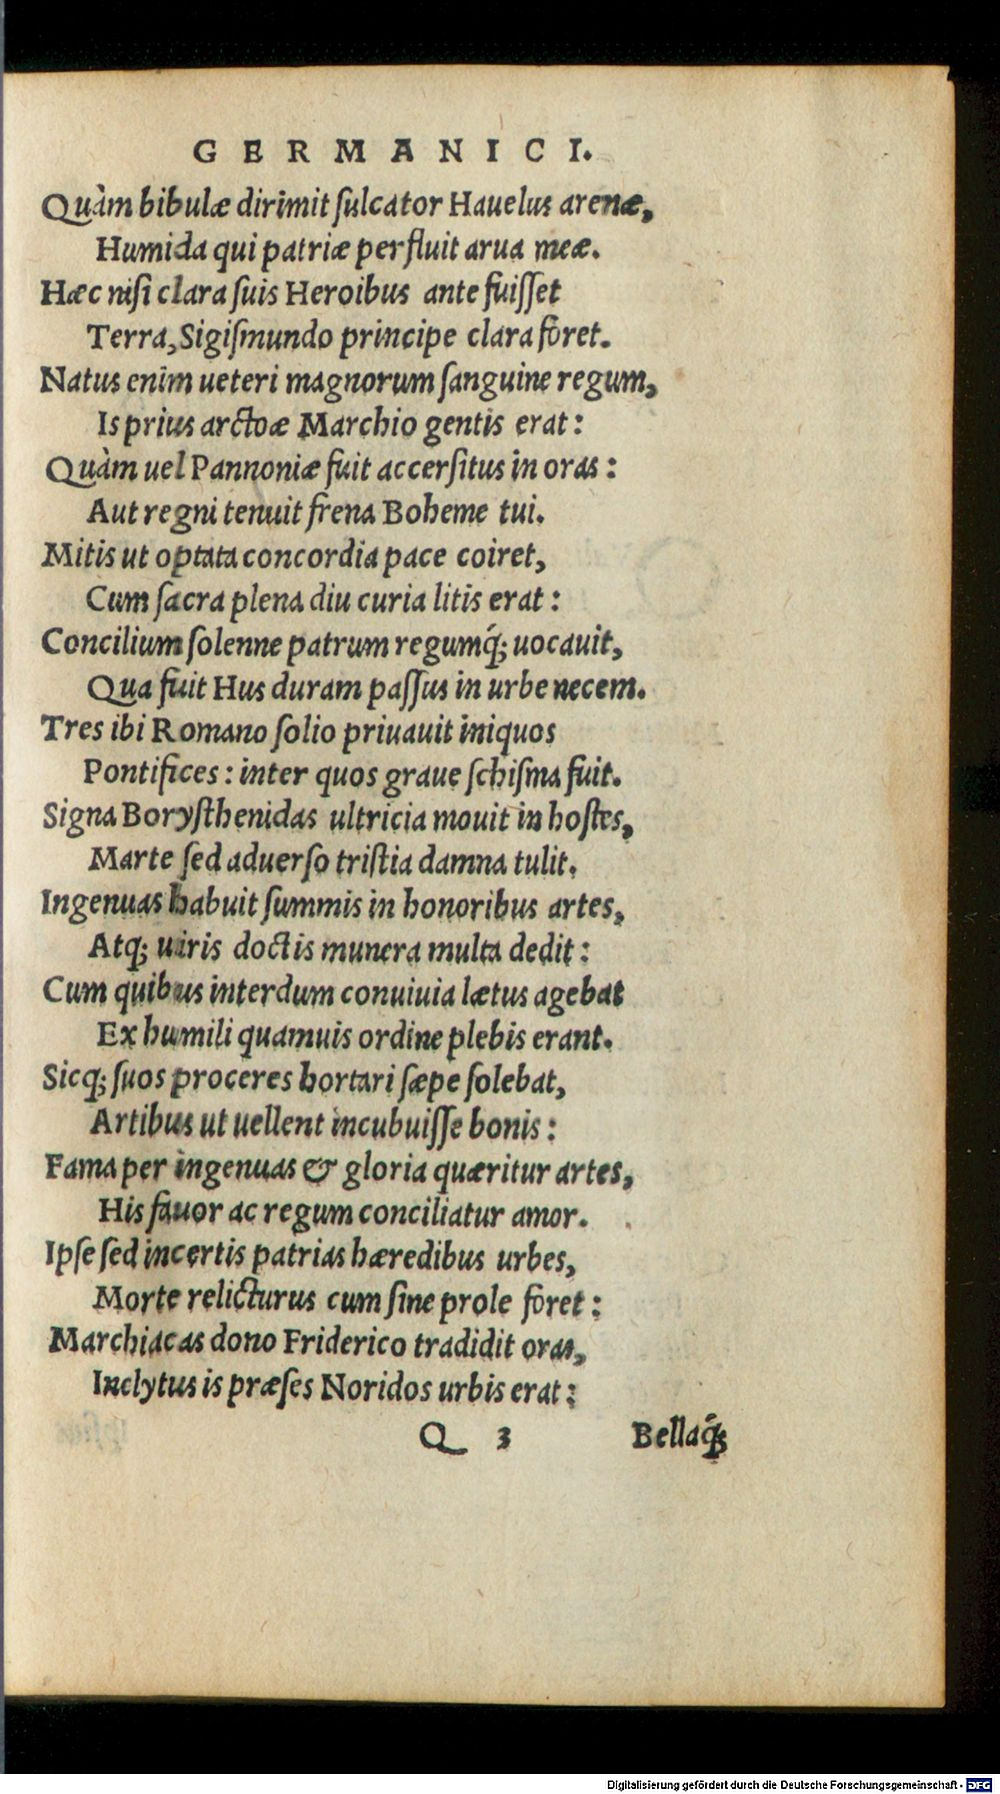 GERMANICI.
Quàm bibulæ dirimit ſulcator Hauelus arenæ,
Humida qui patriæ perfluit arua meæ.
Hæc niſi clara ſuis Heroibus ante fuiſſet
Terra, Sigiſmundo principe clara foret.
Natus enim ueteri magnorum ſanguine regum,
Is prius arctoæ Marchio gentis erat:
Quàm uel Pannoniæ fuit accerſitus in oras:
Aut regni tenuit frena Boheme tui.
Mitis ut optata concordia pace coiret,
Cum ſacra plena diu curia litis erat:
Concilium ſolenne patrum regumq́; uocauit,
Qua fuit Hus duram paſſus in urbe necem.
Tres ibi Romano ſolio priuauit iniquos
Pontifices: inter quos graue ſchiſma fuit.
Signa Boryſthenidas ultricia mouit in hoſtes,
Marte ſed aduerſo triſtia damna tulit.
Ingenuas habuit ſummis in honoribus artes,
Atq; uiris doctis munera multa dedit:
Cum quibus interdum conuiuia lætus agebat
Ex humili quamuis ordine plebis erant.
Sicq; ſuos proceres hortari ſæpe ſolebat,
Artibus ut uellent incubuiſſe bonis:
Fama per ingenuas & gloria quæritur artes,
His fauor ac regum conciliatur amor.
Ipſe ſed incertis patrias hæredibus urbes,
Morte relicturus cum ſine prole foret:
Marchiacas dono Friderico tradidit oras,
Inclytus is præſes Noridos urbis erat:
Q 3 Bellaq́;
Digitalisierung gefördert durch die Deutsche Forschungsgemeinschaft - DFG